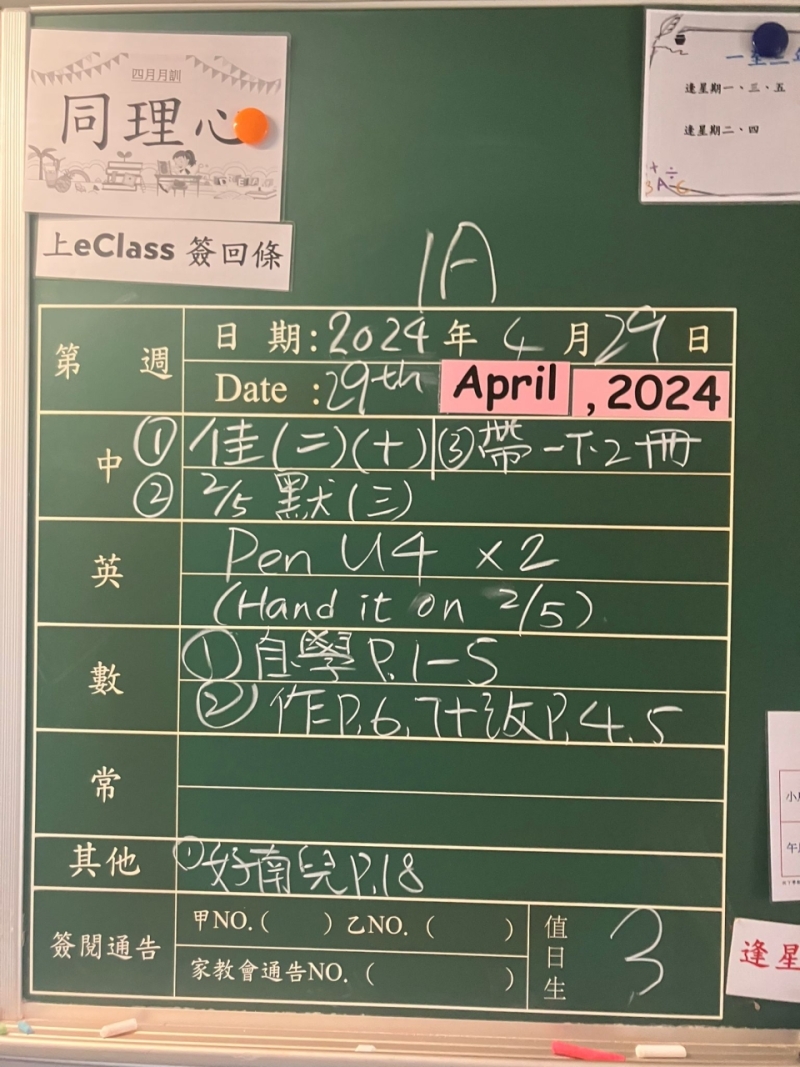 四月月訓
同理心
上eClass 簽回條
逢星期一、三、五
逢星期二、四
1A
第 週
日 期:2024年4月29日
Date :29th April , 2024
中
① 佳(二)(十) ③帶一下.2冊
② 2/5 默(三)
英
Pen U4 x2
(Hand it on 2/5)
數
①自學P.1-5
②作P.6.7+改P.4.5
常
其他
①好南兒P.18
簽閱通告
甲NO.( ) 乙NO. ( )
家教會通告NO. ( )
值日生
3
逢星